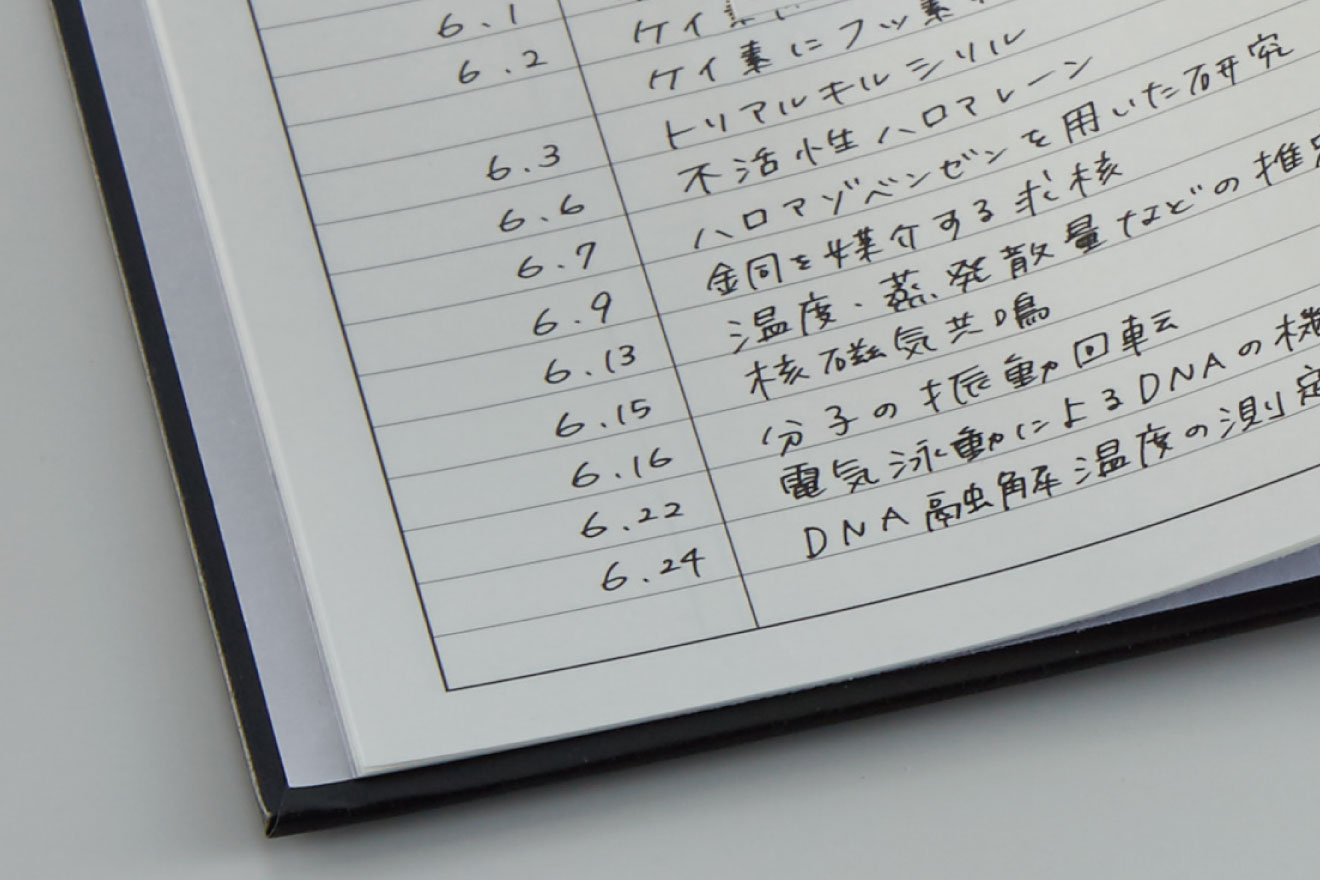 6.1
6.2 ケイ素に
ケイ素にフッ素
6.3 トリアルキルシリル
6.6 不活性ハロマレーン
6.7 ハロマゾベンゼンを用いた研究
6.9 銅を媒介する求核
6.13 温度・蒸発散量などの推
6.15 核磁気共鳴
6.16 分子の振動回転
6.22 電気泳動によるDNAの機
6.24 DNA融解温度の測定